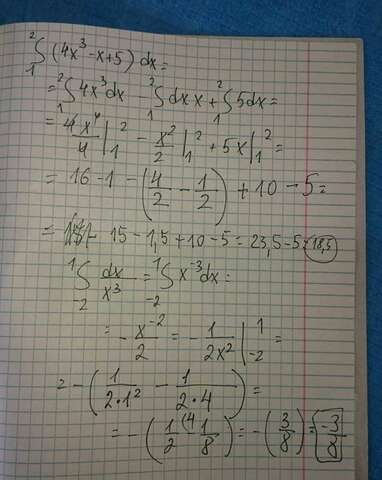 ²∫₁ (4x³ - x + 5) dx =
= ²∫₁ 4x³dx - ²∫₁ dx x + ²∫₁ 5dx =
= 4x⁴/4 |²₁ - x²/2 |²₁ + 5x |²₁ =
= 16 - 1 - (4/2 - 1/2) + 10 - 5 =
= 15 - 1,5 + 10 - 5 = 23,5 - 5 = 18,5
¹∫₋₂ dx/x³ = ¹∫₋₂ x⁻³dx =
= - x⁻²/2 = - 1/2x² |¹₋₂ =
= - (1/2•1² - 1/2•4) =
= - (1/2 (4 - 1/8) = - (3/8) = -3/8